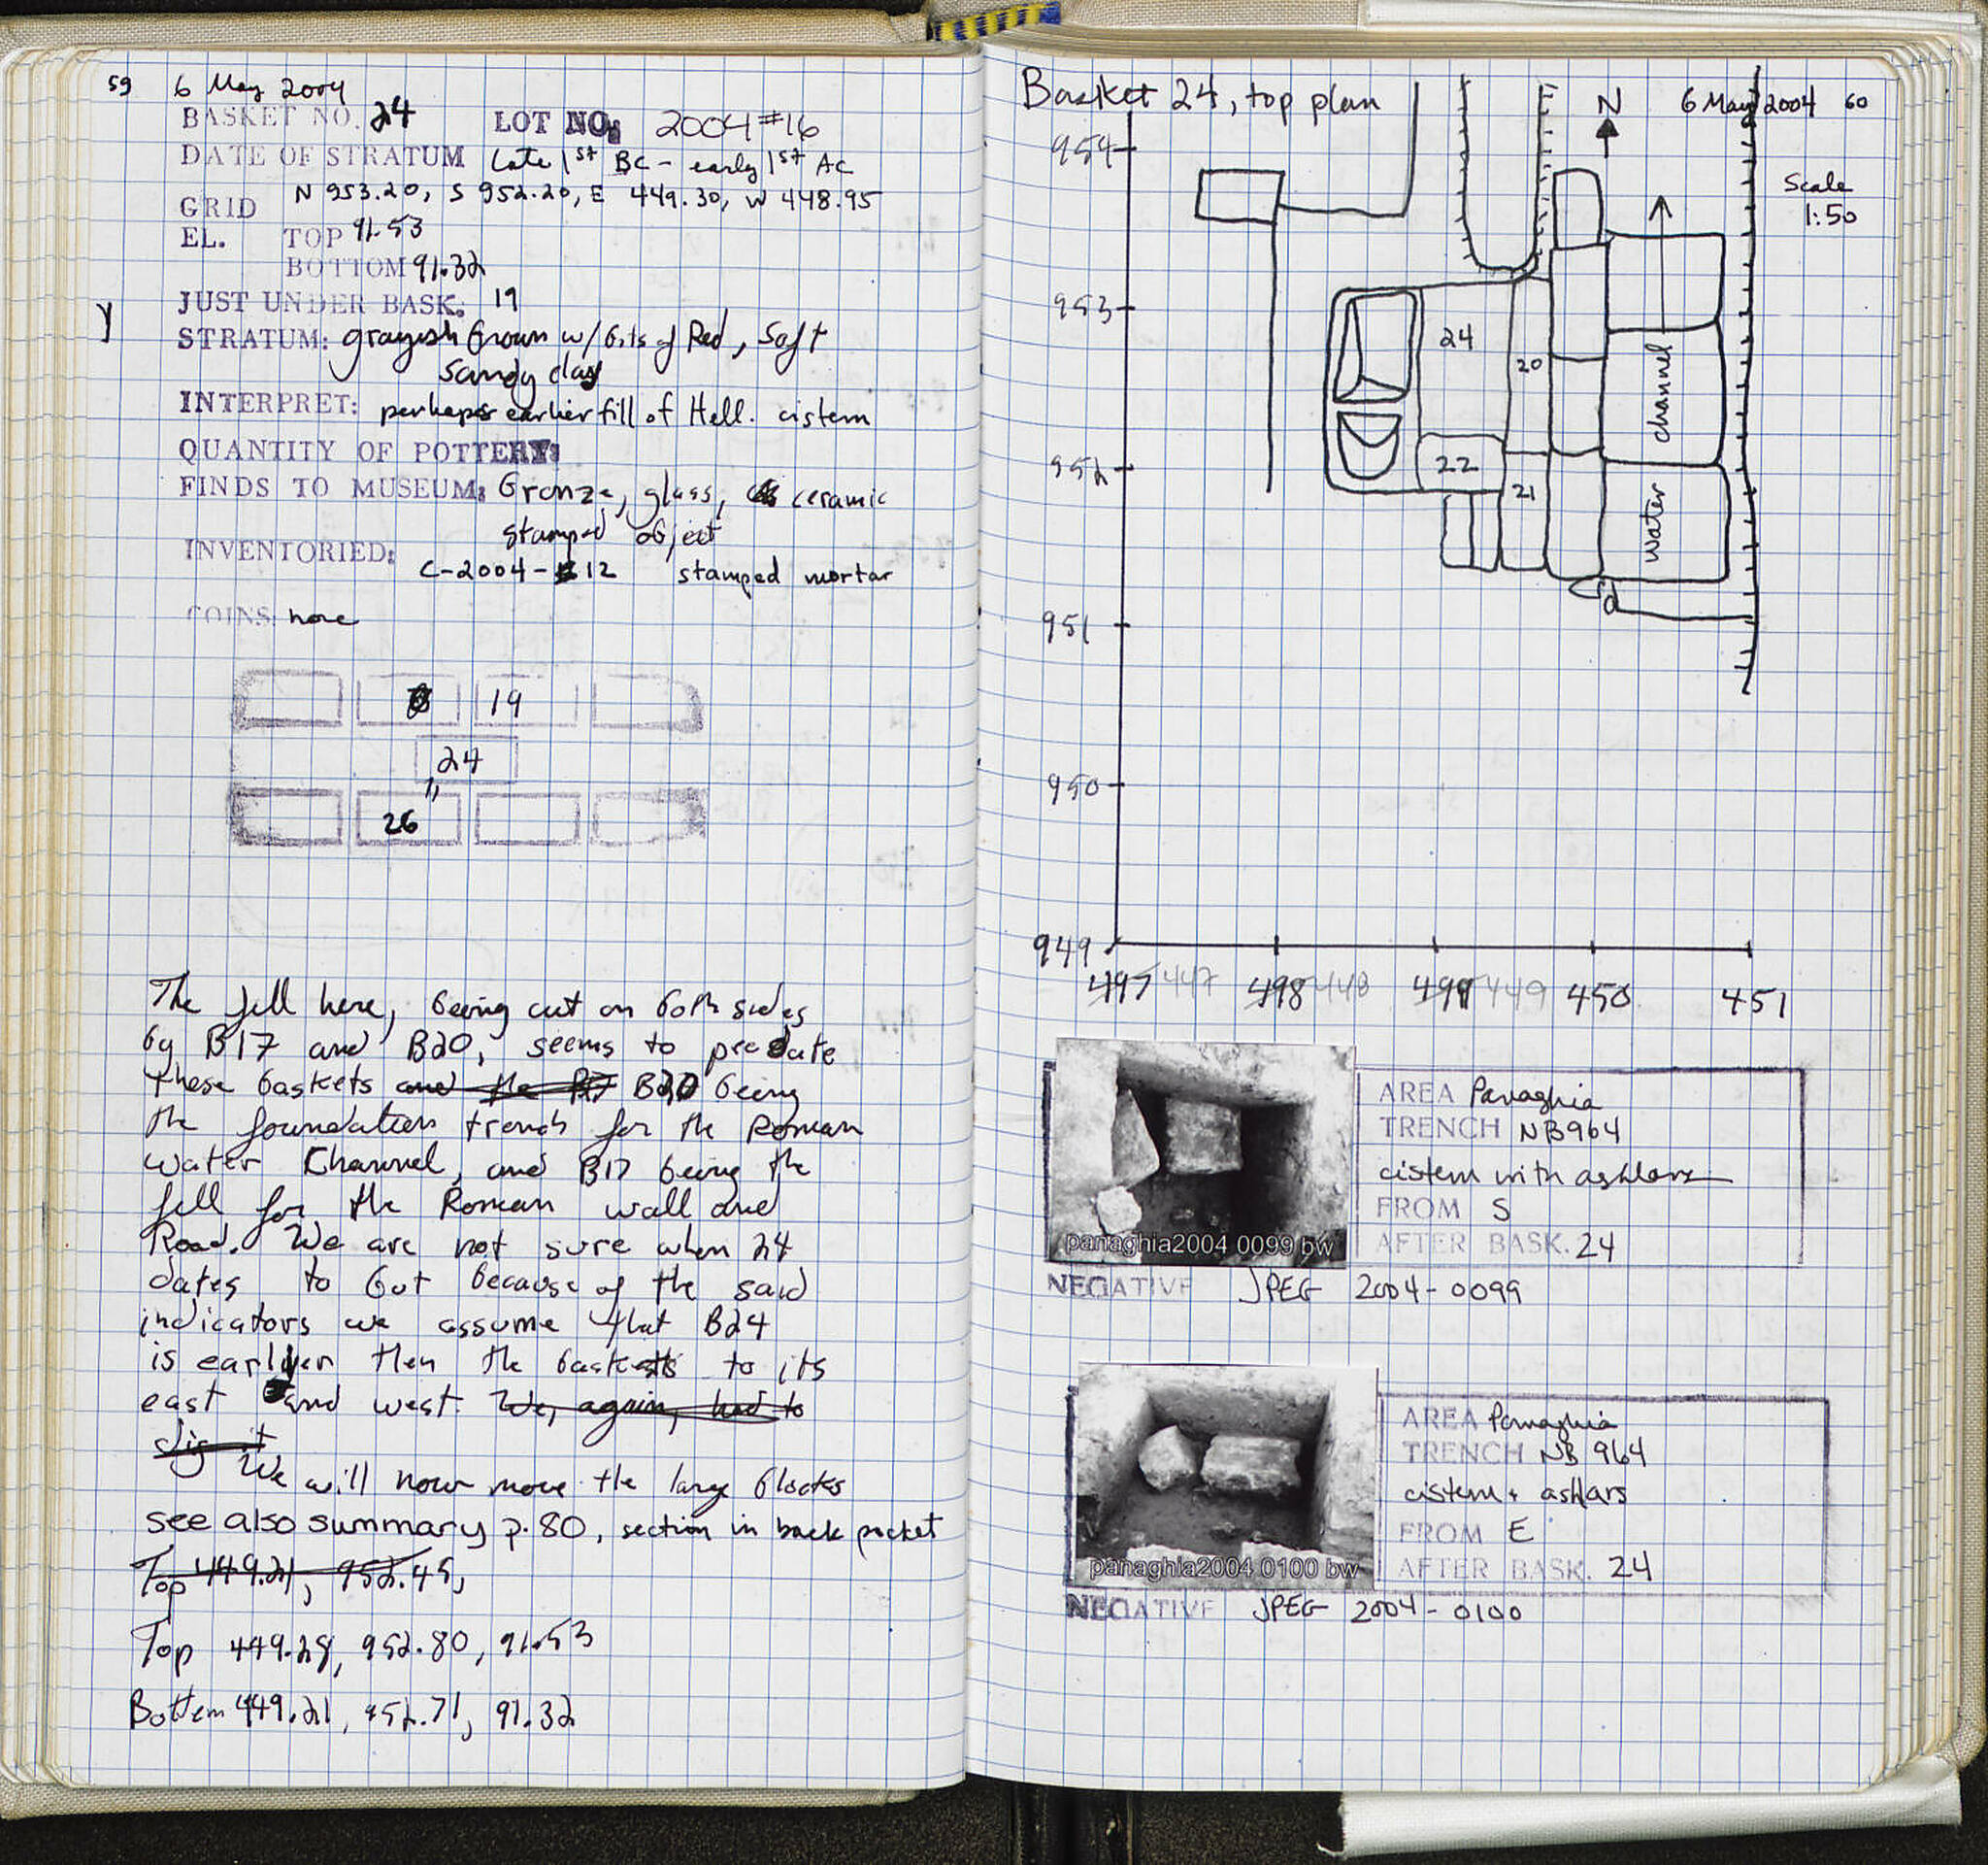 59 6 May 2004
BASKET NO. 24 LOT NO: 2004 #16
DATE OF STRATUM Late 1st BC - early 1st AC
GRID N 953.20, S 952.20, E 449.30, W 448.95
EL. TOP 91.53
BOTTOM 91.32
JUST UNDER BASK: 19
Y
STRATUM: grayish brown w/ bits of Red, Soft
Sandy clay
INTERPRET: perhaps earlier fill of Hell. cistern
QUANTITY OF POTTERY:
FINDS TO MUSEUM: Bronze, glass, ceramic
stamped object
INVENTORIED:
C-2004-12 stamped mortar
COINS: none
19
24
26
The fill here, being cut on both sides
by B17 and B20, seems to predate
these baskets and the B17 B20 being
the foundation trench for the Roman
water Channel, and B17 being the
fill for the Roman wall and
Road. We are not sure when 24
dates to but because of the said
indicators we assume that B24
is earlier then the baskets to its
east and west. We, again, had to
dig it
We will now move the large blocks
see also summary p. 80, section in back pocket
Top 449.21, 952.45,
Top 449.28, 952.80, 91.53
Bottem 449.21, 952.71, 91.32
Basket 24, top plan
N
6 May 2004 60
Scale
1:50
954
953
952
951
950
949
24
20
22
21
water channel
497 447 498 448 499 449 450 451
panaghia2004 0099 bw
AREA Panaghia
TRENCH NB964
cistern with ashlars
FROM S
AFTER BASK. 24
NEGATIVE JPEG 2004-0099
panaghia2004 0100 bw
AREA Panaghia
TRENCH NB 964
cistern + ashlars
FROM E
AFTER BASK. 24
NEGATIVE JPEG 2004-0100